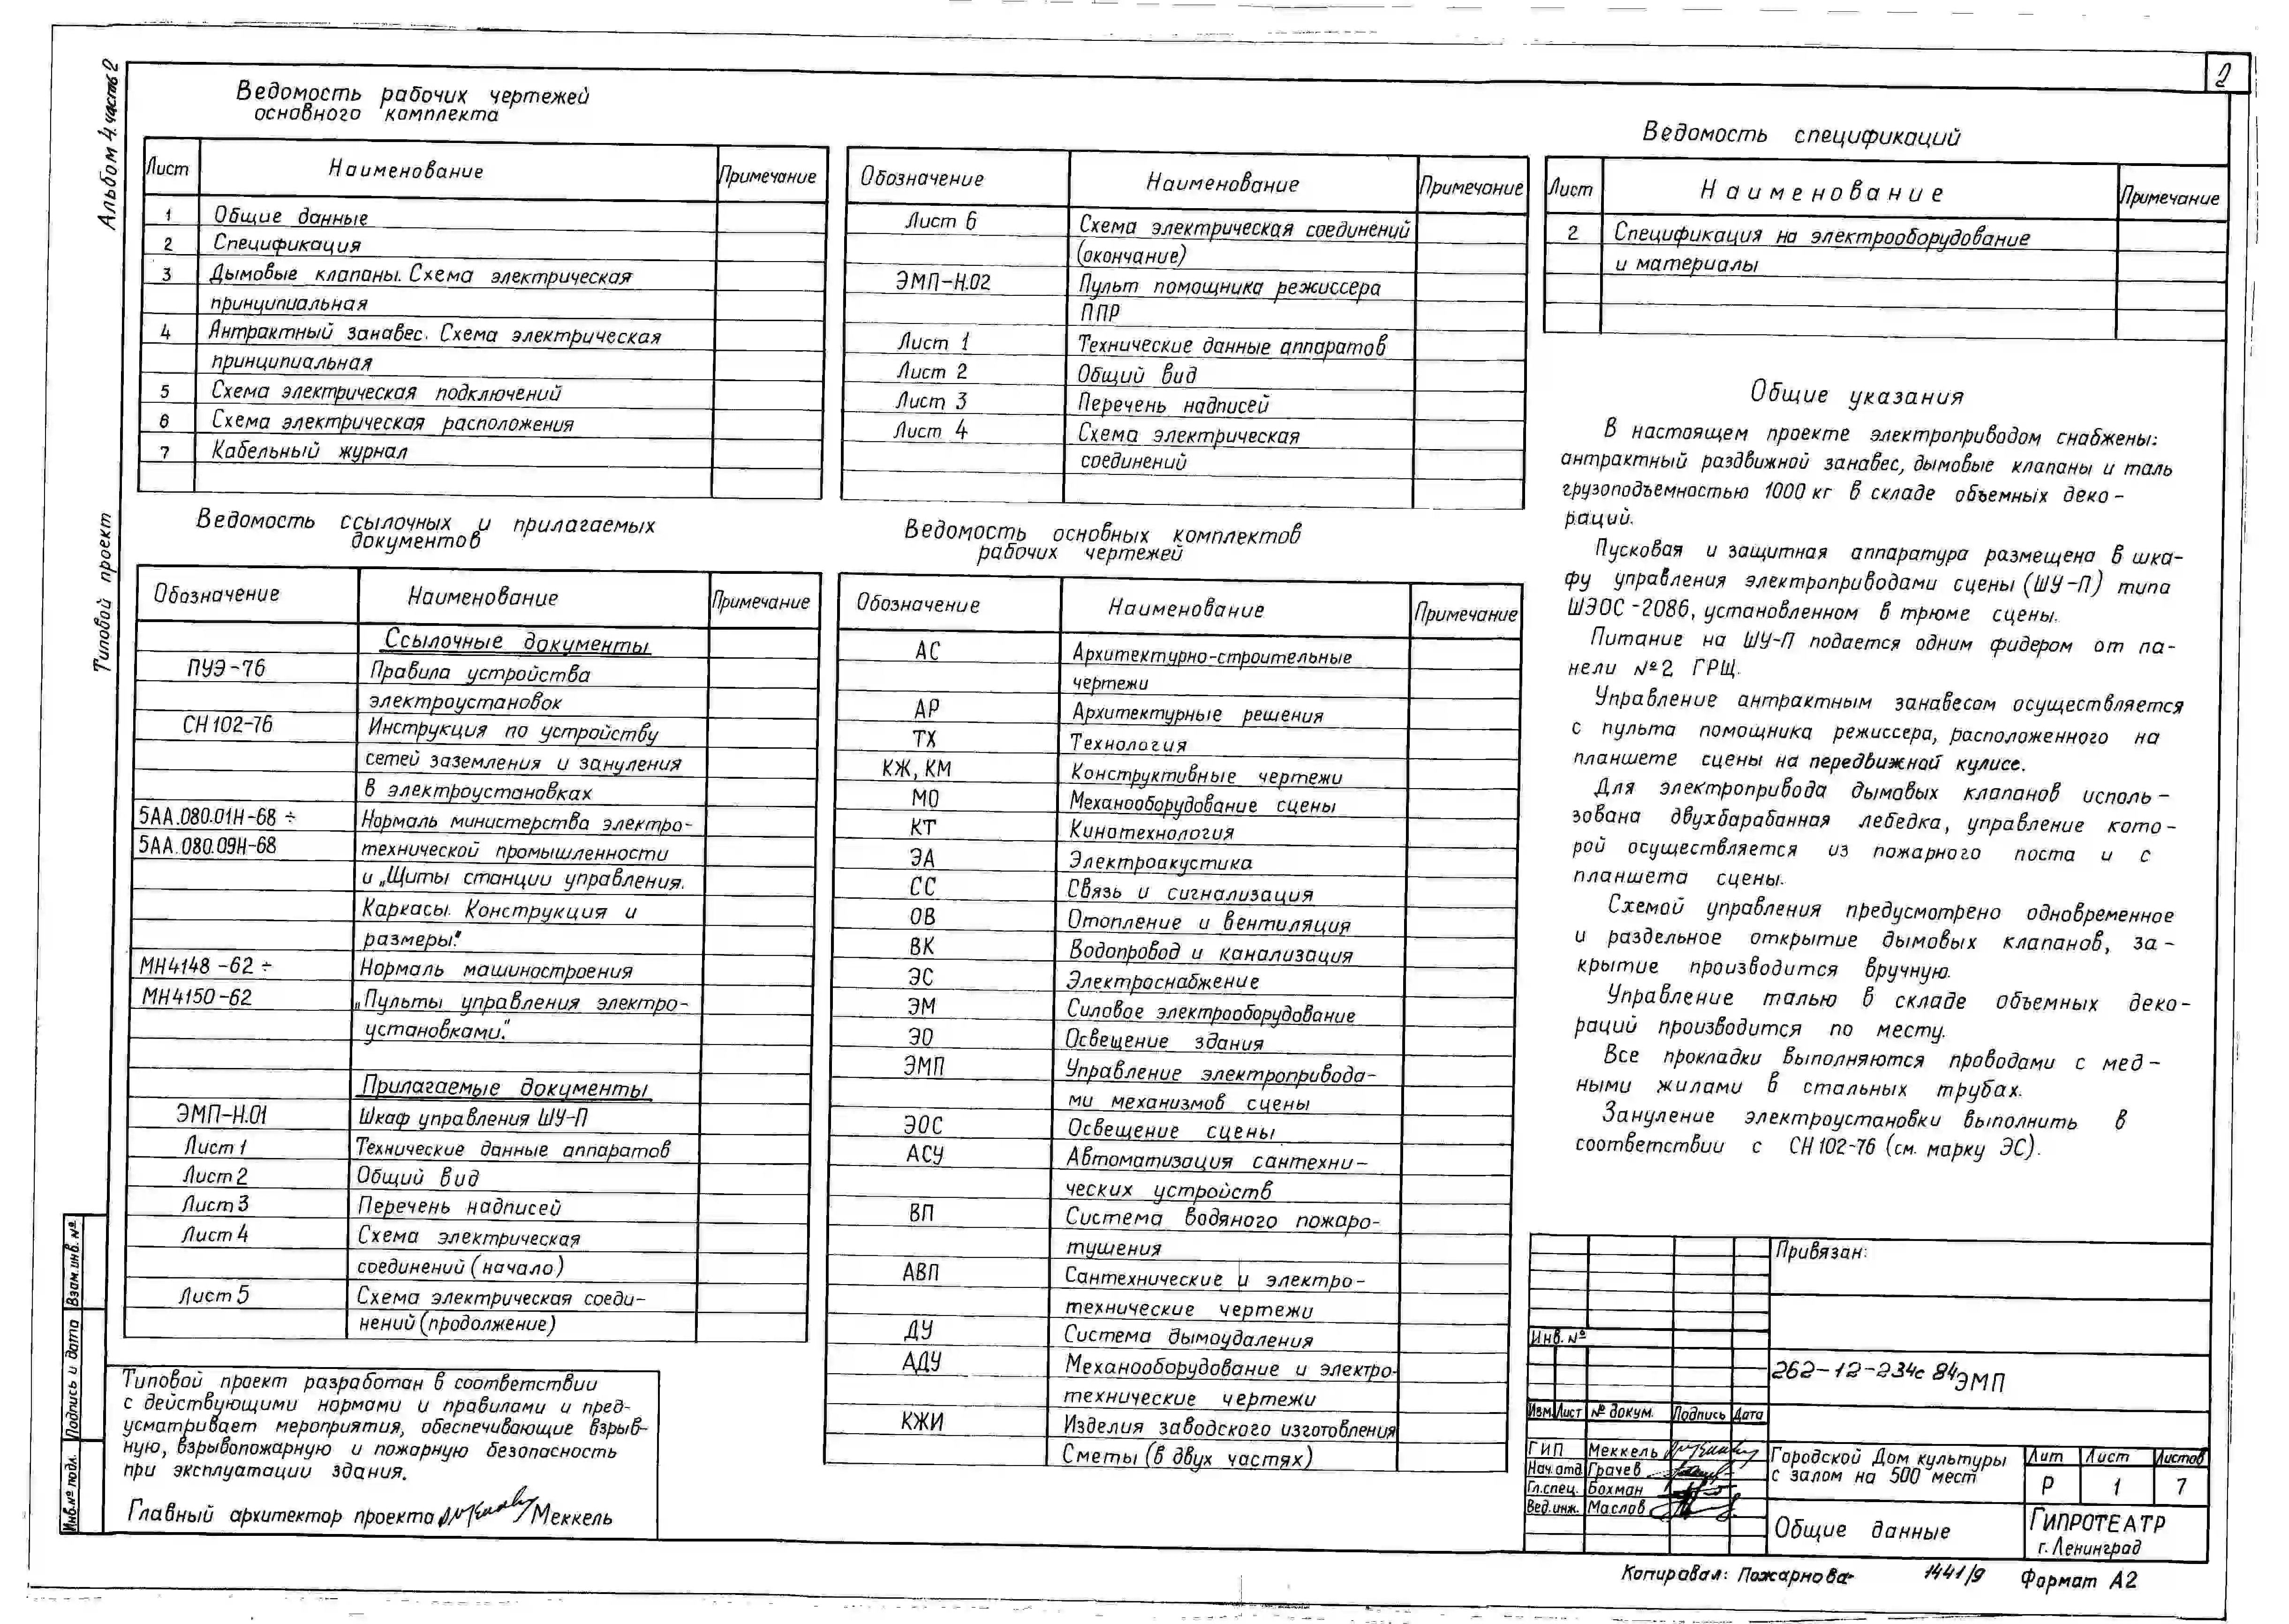 2
Альбом 4. часть 2
Типовой проект
Ведомость рабочих чертежей
основного комплекта
Лист Наименование Примечание
1 Общие данные
2 Спецификация
3 Дымовые клапаны. Схема электрическая
принципиальная
4 Антрактный занавес. Схема электрическая
принципиальная
5 Схема электрическая подключений
6 Схема электрическая расположения
7 Кабельный журнал
Ведомость ссылочных и прилагаемых
документов
Обозначение Наименование Примечание
Ссылочные документы
ПУЭ-76 Правила устройства
электроустановок
СН 102-76 Инструкция по устройству
сетей заземления и зануления
в электроустановках
5АА.080.01Н-68 ÷ Нормаль министерства электро-
5АА.080.09Н-68 технической промышленности
и „Щиты станции управления.
Каркасы. Конструкция и
размеры."
МН4148-62 ÷ Нормаль машиностроения
МН4150-62 „Пульты управления электро-
установками."
Прилагаемые документы
ЭМП-Н.01 Шкаф управления ШУ-П
Лист 1 Технические данные аппаратов
Лист 2 Общий вид
Лист 3 Перечень надписей
Лист 4 Схема электрическая
соединений (начало)
Лист 5 Схема электрическая соеди-
нений (продолжение)
Типовой проект разработан в соответствии
с действующими нормами и правилами и пред-
усматривает мероприятия, обеспечивающие взрыв-
ную, взрывопожарную и пожарную безопасность
при эксплуатации здания.
Главный архитектор проекта Меккель
Взам.инв.№
Подпись и дата
Инв.№ подл.
Обозначение Наименование Примечание
Лист 6 Схема электрическая соединений
(окончание)
ЭМП-Н.02 Пульт помощника режиссера
ППР
Лист 1 Технические данные аппаратов
Лист 2 Общий вид
Лист 3 Перечень надписей
Лист 4 Схема электрическая
соединений
Ведомость основных комплектов
рабочих чертежей
Обозначение Наименование Примечание
АС Архитектурно-строительные
чертежи
АР Архитектурные решения
ТХ Технология
КЖ, КМ Конструктивные чертежи
МО Механооборудование сцены
КТ Кинотехнология
ЭА Электроакустика
СС Связь и сигнализация
ОВ Отопление и вентиляция
ВК Водопровод и канализация
ЭС Электроснабжение
ЭМ Силовое электрооборудование
ЭО Освещение здания
ЭМП Управление электропривода-
ми механизмов сцены
ЭОС Освещение сцены
АСУ Автоматизация сантехни-
ческих устройств
ВП Система водяного пожаро-
тушения
АВП Сантехнические и электро-
технические чертежи
ДУ Система дымоудаления
АДУ Механооборудование и электро-
технические чертежи
КЖИ Изделия заводского изготовления
Сметы (в двух частях)
Ведомость спецификаций
Лист Наименование Примечание
2 Спецификация на электрооборудование
и материалы
Общие указания
В настоящем проекте электроприводом снабжены:
антрактный раздвижной занавес, дымовые клапаны и таль
грузоподъемностью 1000 кг в складе объемных деко-
раций.
Пусковая и защитная аппаратура размещена в шка-
фу управления электроприводами сцены (ШУ-П) типа
ШЭОС-2086, установленном в трюме сцены.
Питание на ШУ-П подается одним фидером от па-
нели №2 ГРЩ.
Управление антрактным занавесом осуществляется
с пульта помощника режиссера, расположенного на
планшете сцены на передвижной кулисе.
Для электропривода дымовых клапанов исполь-
зована двухбарабанная лебедка, управление кото-
рой осуществляется из пожарного поста и с
планшета сцены.
Схемой управления предусмотрено одновременное
и раздельное открытие дымовых клапанов, за-
крытие производится вручную.
Управление талью в складе объемных деко-
раций производится по месту.
Все прокладки выполняются проводами с мед-
ными жилами в стальных трубах.
Зануление электроустановки выполнить в
соответствии с СН 102-76 (см. марку ЭС).
Привязан:
Инв. №
262-12-234с 84 ЭМП
Изм. Лист № докум. Подпись Дата
ГИП Меккель
Нач.отд Грачев
Гл.спец. Бохман
Вед.инж. Маслов
Городской Дом культуры
с залом на 500 мест
Лит Лист Листов
Р 1 7
Общие данные
ГИПРОТЕАТР
г. Ленинград
Копировал: Пожарнова 1441/9 Формат А2